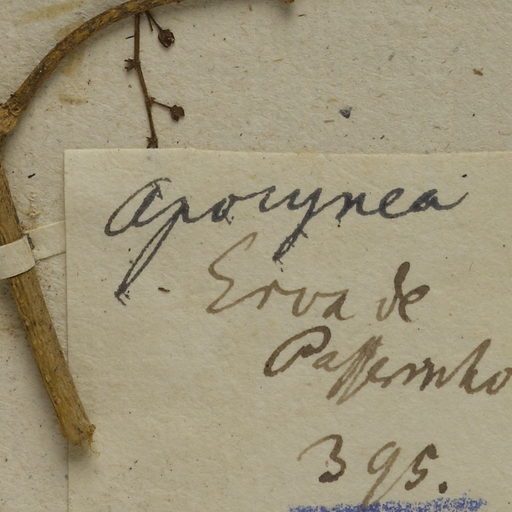 Apocynea
Erva de
Passerinho
395.